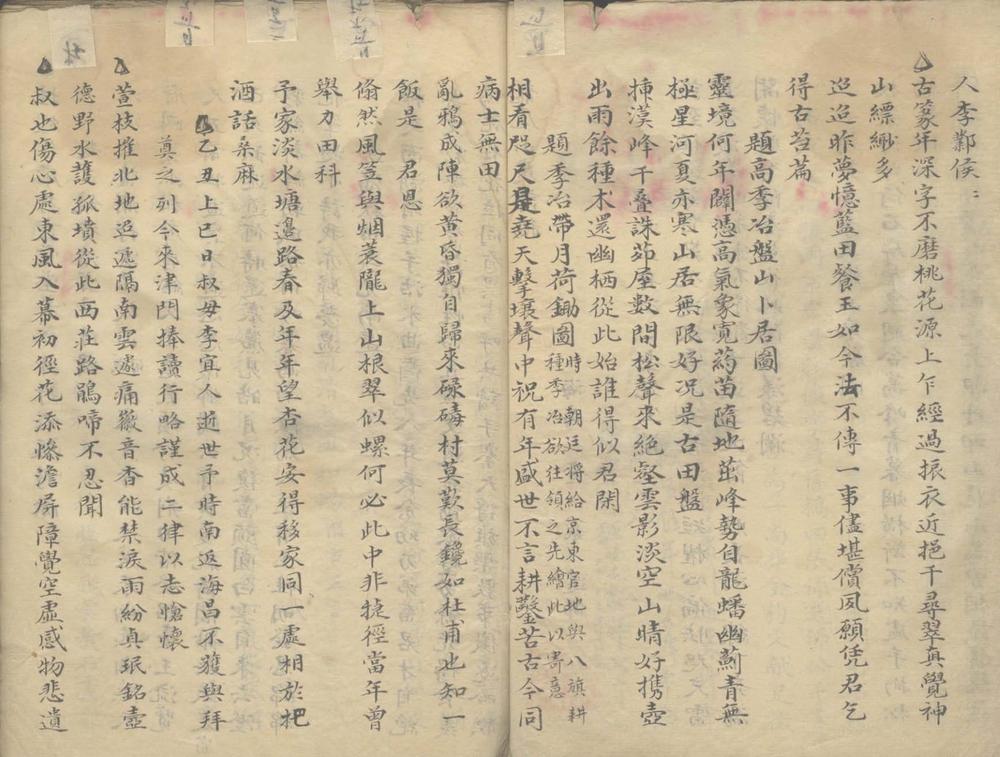 人李鄴侯〻
古篆年深字不磨桃花源上乍經過振衣近挹千尋翠真覺神
山縹緲多
迢迢昨夢憶藍田餐玉如今法不傳一事儘堪償夙願凭君乞
得古苔篇
題高季冶盤山卜居圖
靈境何年闢憑高氣象寬葯苗隨地茁峰勢自龍蟠幽薊青無
極星河夏亦寒山居無限好况是古田盤
挿漢峰千叠誅茆屋數間松聲来絶壑雲影淡空山晴好攜壺
出雨餘種朮還幽栖從此始誰得似君閑
題季冶帶月荷鋤圖時 朝廷将給京東官地與八旗耕
種季冶欲往領之先繪此以寄意
相看咫尺是堯天擊壤聲中祝有年盛世不言耕鑿苦古今同
病士無田
亂鴉成陣欲黄昏獨自歸來碌碡村莫歎長鑱如杜甫也知一
飯是 君恩
翛然風笠與烟蓑隴上山根翠似螺何必此中非㨗徑當年曾
舉力田科
予家淡水塘邉路春及年年望杏花安得移家同一處相於把
酒話桑麻
乙丑上巳日叔母李宜人逝世予時南返海昌不獲與拜
奠之列今來津門捧讀行略謹成二律以志愴懐
萱枝摧北地迢遞隔南雲遽痛徽音杳能禁淚雨紛貞珉銘壼
德野水護孤墳從此西莊路鵑啼不忍聞
叔也傷心處東風入幕初徑花添慘澹屏障覺空虛感物悲遺